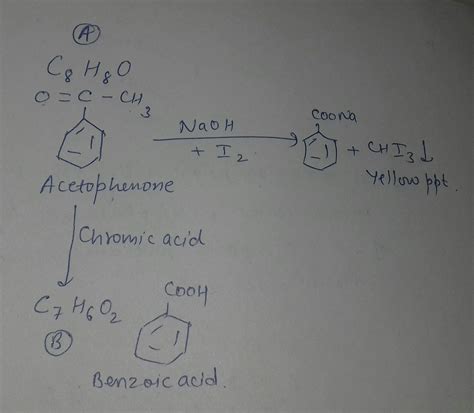 A
C8 H8 O
O = C - CH3
NaOH
+ I2
COONa
+ CHI3↓
Yellow ppt.
Acetophenone
Chromic acid
C7 H6 O2
B
COOH
Benzoic acid.